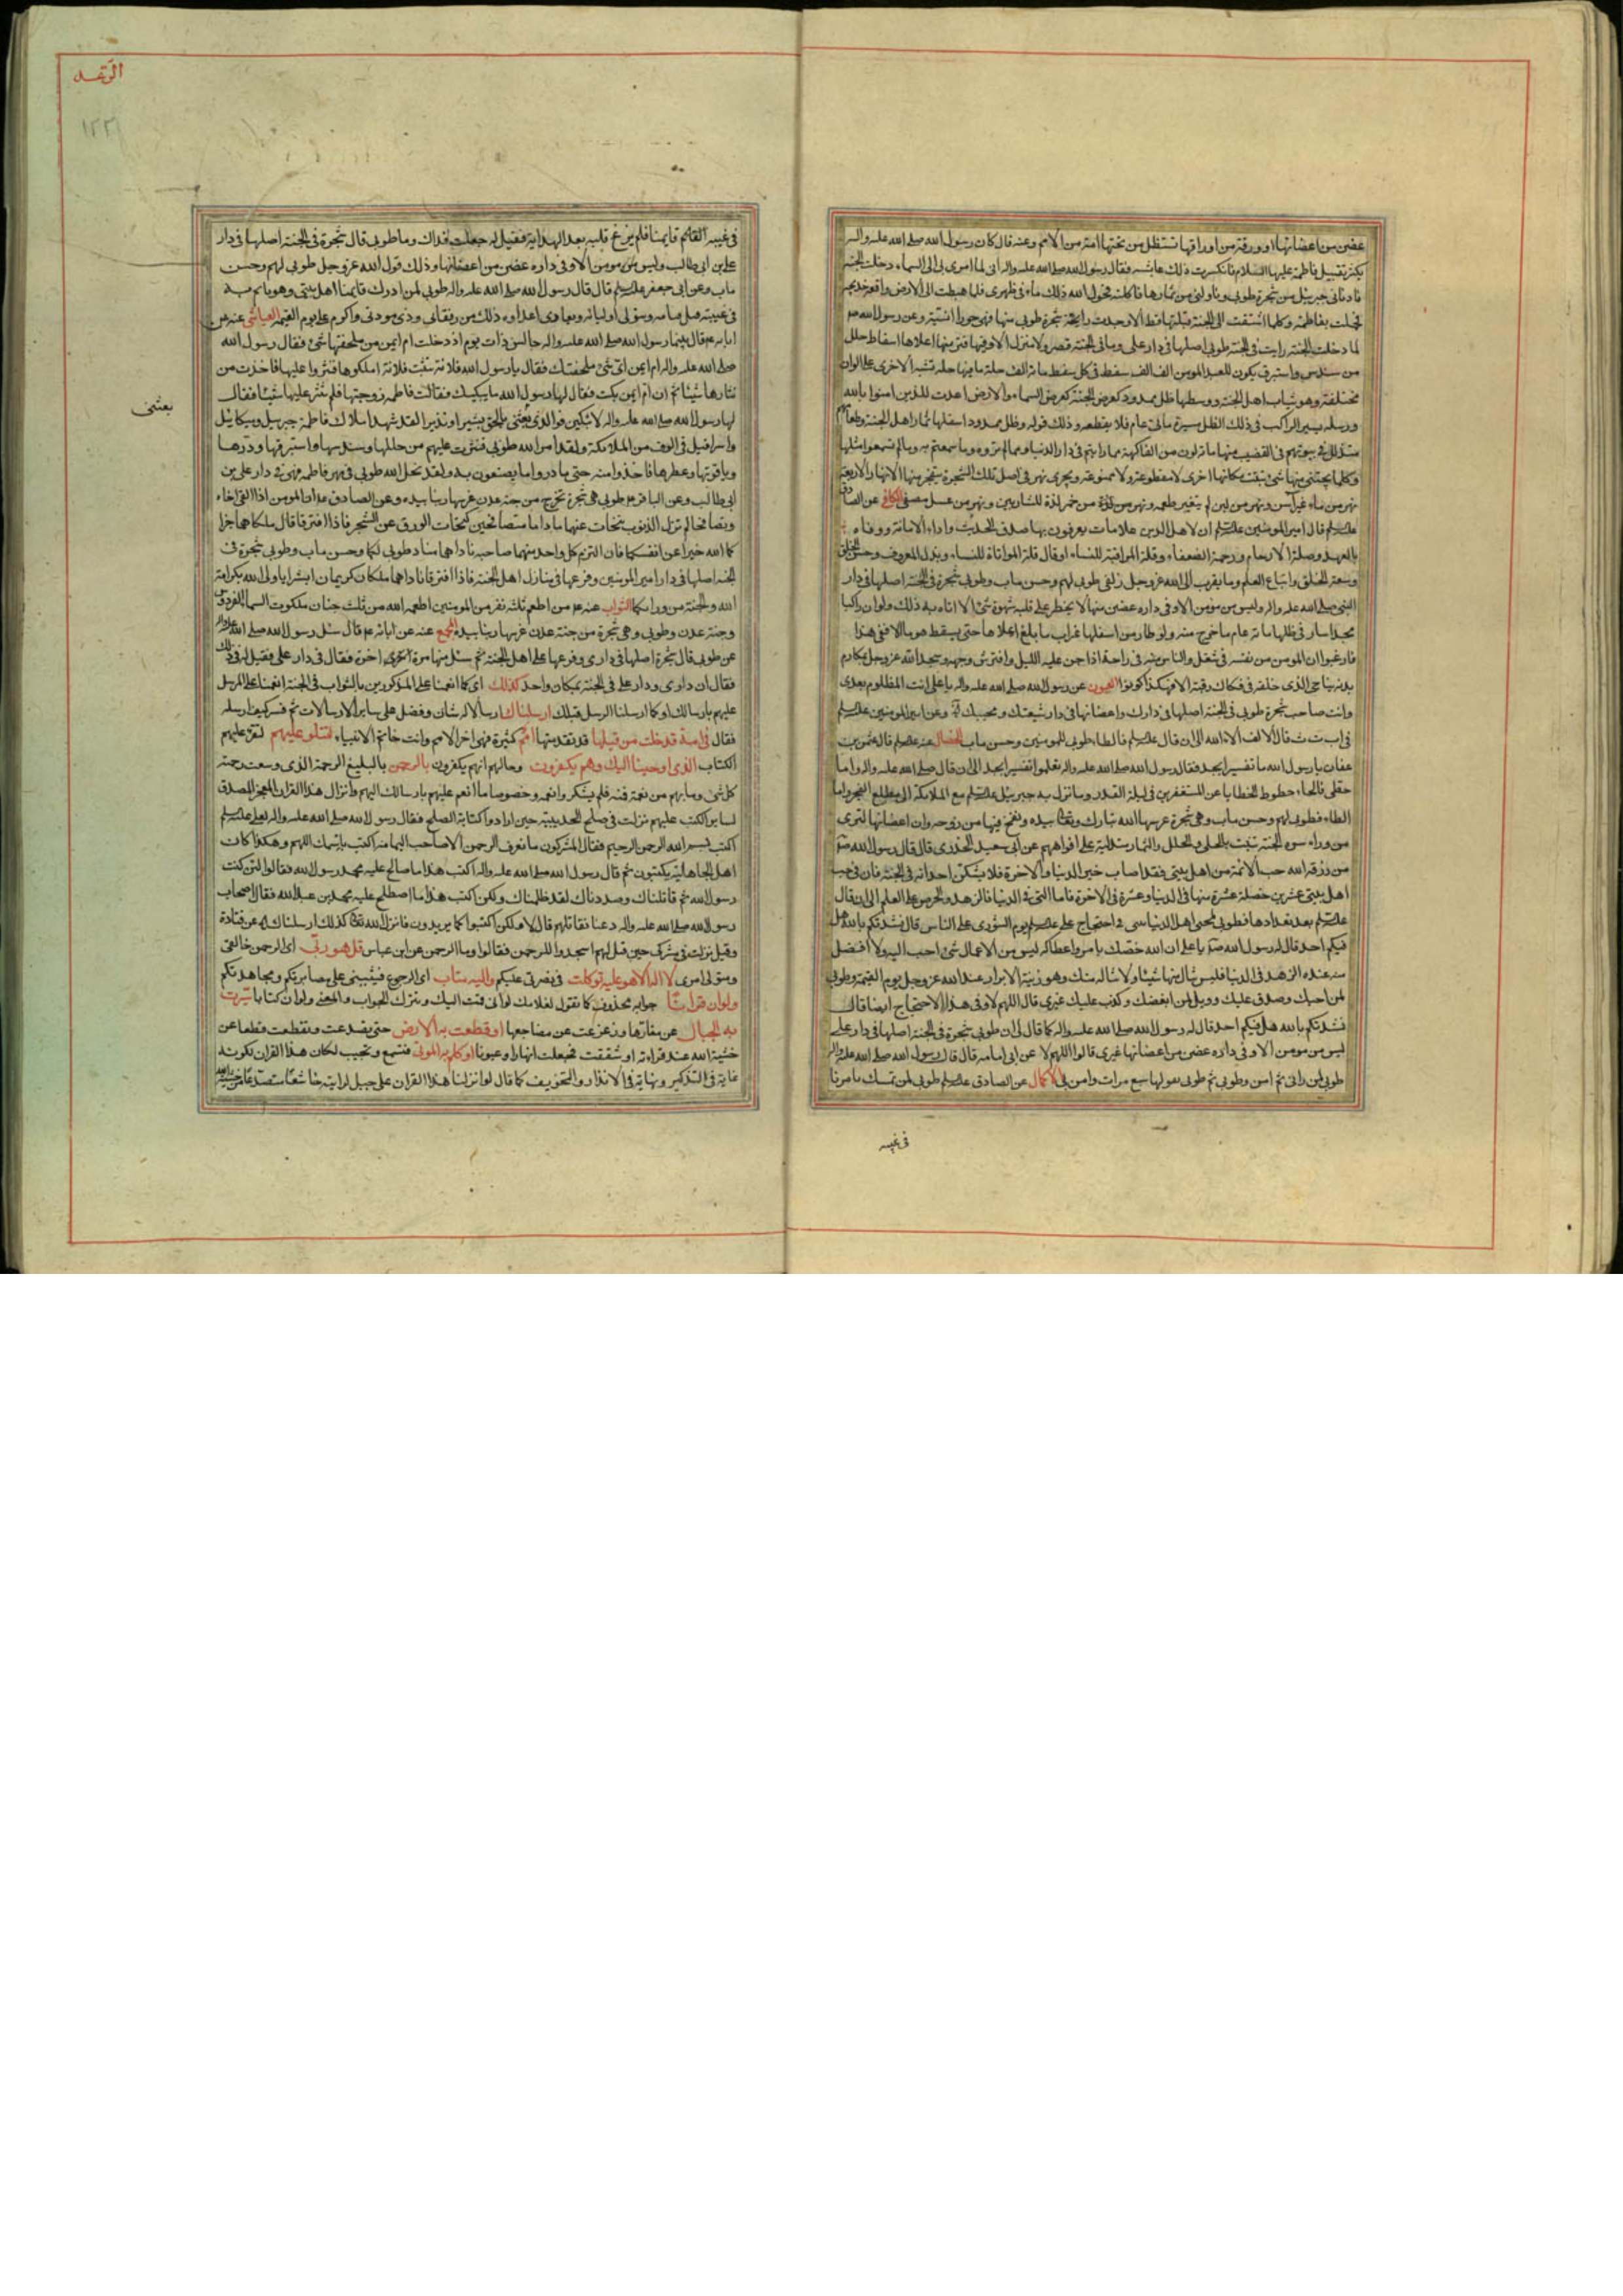 غصن من اغصانها او ورقة من اوراقها تستظل من تحتها امة من الامم وعنه قال كان رسول الله صلى الله عليه واله
يكثر تقبيل فاطمة عليها السلام فانكرت ذلك عايشه فقال رسول الله صلى الله عليه واله انى لما اسرى بى الى السماء دخلت الجنة
فادنانى جبرئيل من شجرة طوبى وناولنى من ثمارها فاكلته فحول الله ذلك ماء فى ظهرى فلما هبطت الى الارض واقعت خديجة
فحملت بفاطمة وكلما اشتقت الى الجنة قبلتها فما قبلتها قط الا وجدت رايحة شجرة طوبى منها فهى حوراء انسية وعن رسول الله
لما دخلت الجنة رايت فى الجنة طوبى اصلها فى دار على وما فى الجنة قصر ولا منزل الا وفيها فتر منها اعلاها اسفاط حلل
من سندس واستبرق يكون للعبد المومن الف الف سفط فى كل سفط مائة الف حلة ما فيها حلة تشبه الاخرى على الوان
مختلفة وهو ثياب اهل الجنة ووسطها ظل ممدود كعرض الجنة كعرض السماء والارض اعدت للذين امنوا بالله
ورسله يسير الراكب فى ذلك الظل مسيرة مائتى عام فلا يقطعه وذلك قوله وظل ممدود اسفلها ثمار اهل الجنة وطعامهم
متدلل فى بيوتهم فى القضيب منها مائة لون من الفاكهة مما رايتم فى دار الدنيا ومما لم تروه وما سمعتم به وما لم تسمعوا مثلها
وكلما يجتنى منها شئ نبتت مكانها اخرى لا مقطوعة ولا ممنوعة ويجرى نهر فى اصل تلك الشجرة ينفجر منها الانهار الاربعة
نهر من ماء غير اسن ونهر من لبن لم يتغير طعمه ونهر من خمر لذة للشاربين ونهر من عسل مصفى الكافى عن الصادق
عليه السلام قال امير المومنين عليه السلام ان لاهل الدين علامات يعرفون بها صدق الحديث واداء الامانة ووفاء
بالعهد وصلة الارحام ورحمة الضعفاء وقلة المراقبة للنساء او قال قلة المواتاة للنساء وبذل المعروف وحسن الخلق
وسعة الخلق واتباع العلم وما يقرب الى الله عز وجل زلفى طوبى لهم وحسن ماب وطوبى شجرة فى الجنة اصلها فى دار
النبى صلى الله عليه واله وليس من مومن الا وفى داره غصن منها لا يخطر على قلبه شهوة شئ الا اتاه به ذلك ولو ان راكبا
مجدا سار فى ظلها مائة عام ما خرج منه ولو طار من اسفلها غراب ما بلغ اعلاها حتى يسقط هرما الا ففى هذا
فارغبوا ان المومن من نفسه فى شغل والناس منه فى راحة اذا جن عليه الليل وافترش وجهه وسجد لله عز وجل بمكارم
بدنه يناجى الذى خلقه فى فكاك رقبته الا فهكذا كونوا العيون عن رسول الله صلى الله عليه واله يا على انت المظلوم بعدى
وانت صاحب شجرة طوبى فى الجنة اصلها فى دارك واغصانها فى دار شيعتك ومحبيك وعن امير المومنين عليه السلام
فى ا ب ت ث قال الالف الاء الله الى ان قال عليه السلام فالطاء طوبى للمومنين وحسن ماب الخصال عنه عليه السلام قال عثمن بن
عفان يا رسول الله ما تفسير ابجد فقال رسول الله صلى الله عليه واله تعلموا تفسير ابجد الى ان قال صلى الله عليه واله واما
حطى فالحاء حطوط الخطايا عن المستغفرين فى ليلة القدر وما نزل به جبرئيل عليه السلام مع الملائكة الى مطلع الفجر واما
الطاء فطوبى لهم وحسن ماب وهى شجرة غرسها الله تبارك وتعالى بيده ونفخ فيها من روحه وان اغصانها لترى
من وراء سور الجنة تنبت بالحلى والحلل والثمار متدلية على افواههم عن ابى سعيد الخدرى قال قال رسول الله
من رزقه الله حب الائمة من اهل بيتى فقد اصاب خير الدنيا والاخرة فلا يشكن احد انه فى الجنة فان فى حب
اهل بيتى عشرين خصلة عشرة منها فى الدنيا وعشرة فى الاخرة فاما التى فى الدنيا فالزهد والحرص على العلم الى ان قال
عليه السلام بعد تعدادها فطوبى لمحبى اهل بيتى فى احتجاج على عليه السلام يوم الشورى على الناس قال نشدتكم بالله هل
فيكم احد قال له رسول الله يا على ان الله خصك بامر واعطاكه ليس من الاعمال شئ احب اليه ولا افضل
منه عنده الزهد فى الدنيا فليس تنال منها شيئا ولا تناله منك وهو زينة الابرار عند الله عز وجل يوم القيمة وطوبى
لمن احبك وصدق عليك وويل لمن ابغضك وكذب عليك غيرى قال اللهم لا وفى هذا الاحتجاج ايضا قال
نشدتكم بالله هل فيكم احد قال له رسول الله صلى الله عليه واله كما قال لى ان طوبى شجرة فى الجنة اصلها فى دار على
ليس من مومن الا وفى داره غصن من اغصانها غيرى قالوا اللهم لا عن ابى امامه قال قال رسول الله صلى الله عليه واله
طوبى لمن رانى ثم امن وطوبى ثم طوبى يقولها سبع مرات لمن لم يرنى وامن بى الاكمال عن الصادق عليه السلام طوبى لمن تمسك بامرنا
فى غيبه
الرعد
١٢٢
فى غيبة القائم قايمنا فلم يزغ قلبه بعد الهداية فقيل له جعلت فداك وما طوبى قال شجرة فى الجنة اصلها فى دار
على بن ابى طالب وليس من مومن الا وفى داره غصن من اغصانها وذلك قول الله عز وجل طوبى لهم وحسن
ماب وعن ابى جعفر عليه السلام قال قال رسول الله صلى الله عليه واله طوبى لمن ادرك قايمنا اهل بيتى وهو ياتم به
فى غيبته قبل قيامه ويتولى اوليائه ويعادى اعداءه ذلك من رفقائى وذى مودتى واكرم على يوم القيمة العياشى عنه عن
ابائه قال بينما رسول الله صلى الله عليه واله جالس ذات يوم اذ دخلت ام ايمن من ملحفتها شئ فقال رسول الله
صلى الله عليه واله ام ايمن اى شئ ملحفتك فقال يا رسول الله فلانة بنت فلانة املكوها فنثروا عليها فاخذت من
نثارها شيئا ثم ان ام ايمن بكت فقال لها رسول الله ما يبكيك فقالت فاطمة زوجتها فلم تنثر عليها شيئا فقال
لها رسول الله صلى الله عليه واله لا تبكين فوالذى بعثنى بالحق بشيرا ونذيرا لقد شهد املاك فاطمة جبريل وميكائيل
بعثنى
واسرافيل فى الوف من الملائكة ولقد امر الله طوبى فنثرت عليهم من حللها وسندسها واستبرقها ودرها
وياقوتها وعطرها فاخذوا منه حتى ما دروا ما يصنعون به ولقد نحل الله طوبى فى مهر فاطمة فهى فى دار على بن
ابى طالب وعن الباقر طوبى هى شجرة تخرج من جنة عدن غرسها ربنا بيده وعن الصادق ان المومن اذا لقى اخاه
وتصافحا لم تزل الذنوب تتحات عنهما ما داما متصافحين كتحات الورق عن الشجر فاذا افترقا قال ملكاهما جزا
كما الله خيرا عن انفسكما فان التزم كل واحد منهما صاحبه ناداهما مناد طوبى لكما وحسن ماب وطوبى شجرة فى
الجنة اصلها فى دار امير المومنين وفرعها فى منازل اهل الجنة فاذا افترقا ناداهما ملكان كريمان ابشرا يا وليى الله بكرامة
الله والجنة من ورائكما الثواب عنه من اطعم ثلثه نفر من المومنين اطعمه الله من ثلث جنان ملكوت السماء الفردوس
وجنة عدن وطوبى وهى شجرة من جنة عدن غرسها ربنا بيده المجمع عنه عن ابائه قال سئل رسول الله صلى الله عليه واله
عن طوبى قال شجرة اصلها فى دارى وفرعها على اهل الجنة ثم سئل منها مرة اخرى فقال فى دار على فقيل له فى ذلك
فقال ان دارى ودار على فى الجنة بمكان واحد كذلك اى كما انعمنا على المذكورين بالثواب فى الجنة انعمنا على المرسل
عليهم بارسالك او كما ارسلنا الرسل قبلك ارسلناك ارسالا له شان وفضل على ساير الارسالات ثم فسر كيف ارسله
فقال فى امة قد خلت من قبلها قد تقدمتها امم كثيرة فهى اخر الامم وانت خاتم الانبياء لتتلو عليهم لتقرء عليهم
الكتاب الذى اوحينا اليك وهم يكفرون وحالهم انهم يكفرون بالرحمن بالبليغ الرحمة الذى وسعت رحمته
كل شئ وما بهم من نعمة فمنه فلم يشكروا نعمه وخصوصا ما انعم عليهم بارسالك اليهم وانزال هذا القران المعجز المصدق
لساير الكتب عليهم نزلت فى صلح الحديبية حين ارادوا كتابة الصلح فقال رسول الله صلى الله عليه واله لعلى عليه السلم
اكتب بسم الله الرحمن الرحيم فقال المشركون ما نعرف الرحمن الا صاحب اليمامه اكتب باسمك اللهم وهكذا كان
اهل الجاهلية يكتبون ثم قال رسول الله صلى الله عليه واله اكتب هذا ما صالح عليه محمد رسول الله فقالوا لئن كنت
رسول الله ثم قاتلناك وصددناك لقد ظلمناك ولكن اكتب هذا ما اصطلح عليه محمد بن عبد الله فقال اصحاب
رسول الله صلى الله عليه واله دعنا نقاتلهم قال لا ولكن اكتبوا كما يريدون فانزل الله تعالى كذلك ارسلناك الاية عن قتادة
وقيل نزلت فى مشركى حين قيل لهم اسجدوا للرحمن فقالوا وما الرحمن عن ابن عباس قل هو ربى اى الرحمن خالقى
ومتولى امرى لا اله الا هو عليه توكلت فى نصرتى عليكم واليه متاب اى الرجوع فيثيبنى على مصابرتكم ومجاهدتكم
ولو ان قرانا جوابه محذوف كما تقول لغلامك لو انى قمت اليك وتترك الجواب والمعنى ولو ان كتابا سيرت
به الجبال عن مقارها وزعزعت عن مضاجعها او قطعت به الارض حتى يصدعت وتقطعت قطعا عن
خشية الله عند قراءته او شققت فجعلت انهارا وعيونا او كلم به الموتى فتسمع وتجيب لكان هذا القران لكونه
غاية فى التذكير ونهاية فى الانذار والتخويف كما قال لو انزلنا هذا القران على جبل لرايته خاشعا متصدعا من خشية الله